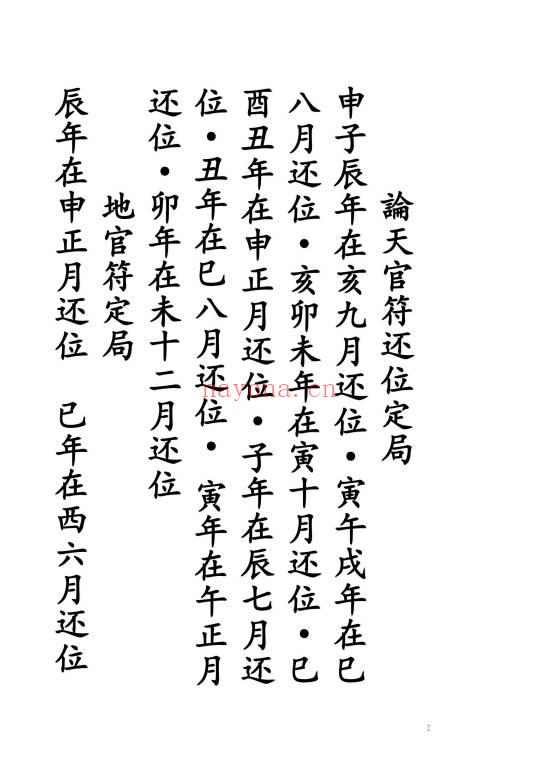 論天官符还位定局
申子辰年在亥九月还位·寅午戌年在巳
八月还位·亥卯未年在寅十月还位·巳
酉丑年在申正月还位·子年在辰七月还
位·丑年在巳八月还位·寅年在午正月
还位·卯年在未十二月还位
地官符定局
辰年在申正月还位 巳年在西六月还位
nayona.cn
1